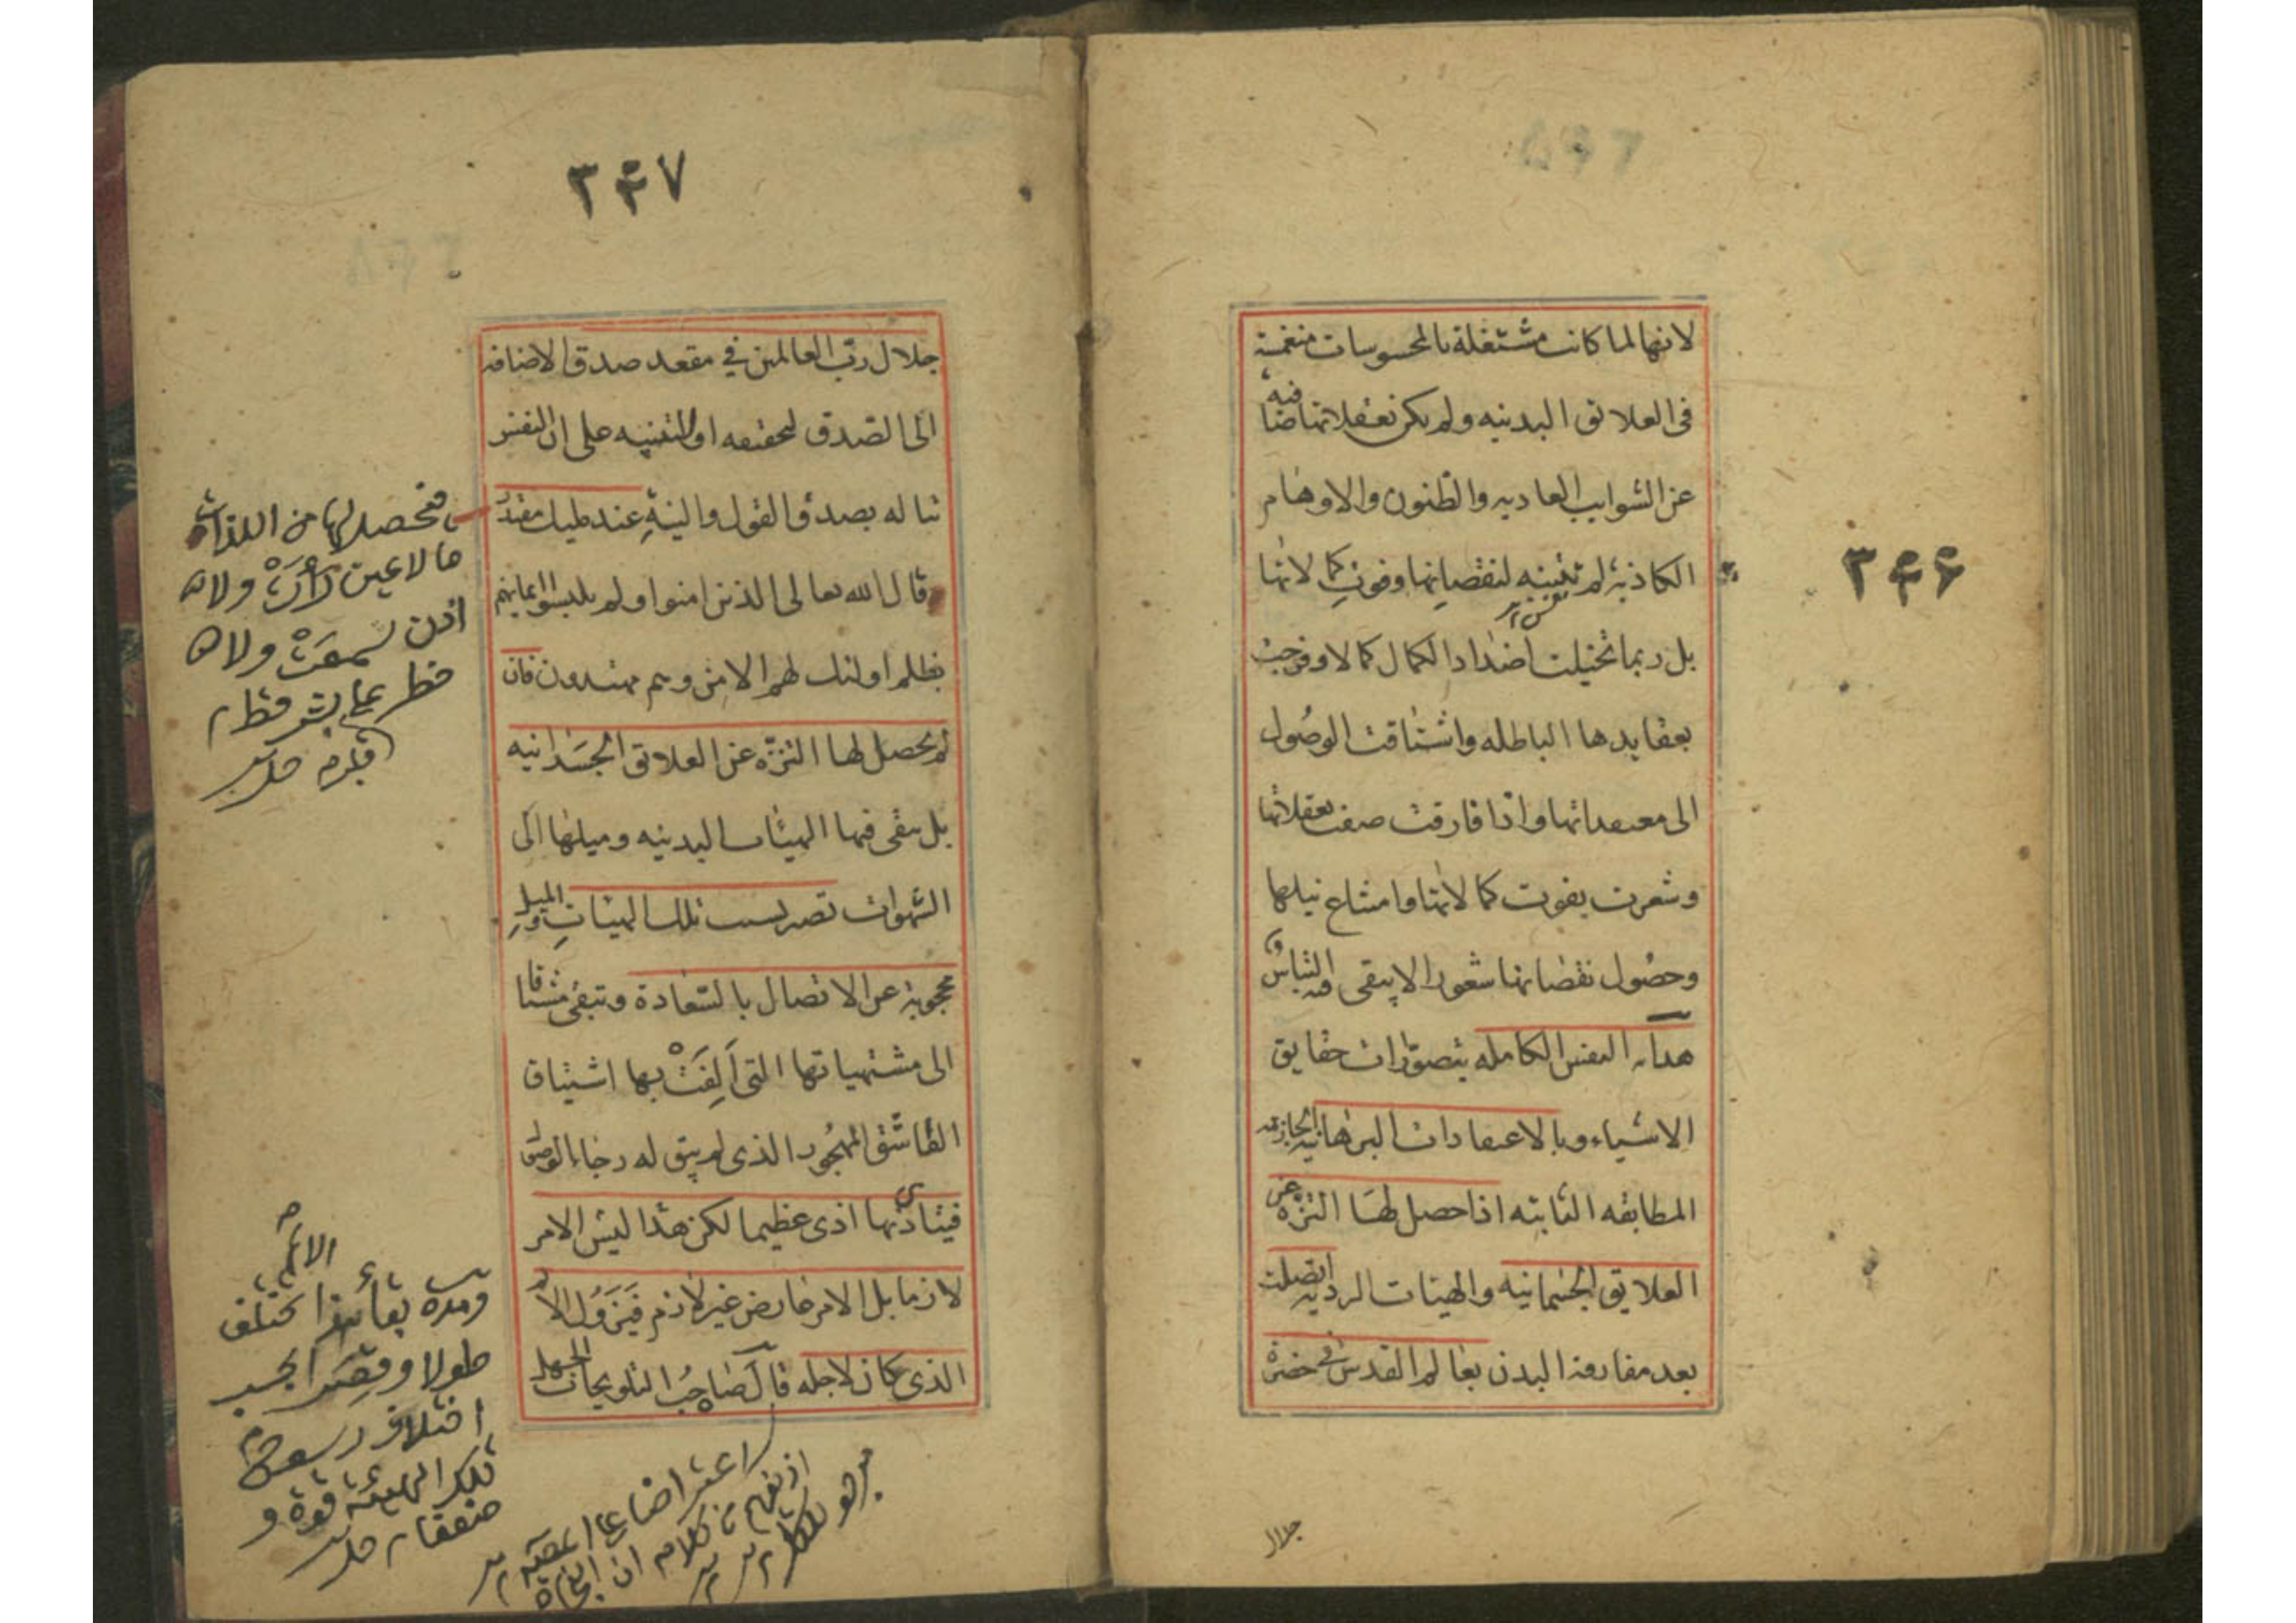 ٣٤٦
لانها لما كانت مشتغلة بالمحسوسات منغمسة
فى العلايق البدنيه ولم يكن تعقلاتها صافية
عن الشوايب العاديه والظنون والاوهام
الكاذبة لم تتنبه لنقصاناتها وفوت كمالاتها
بل ربما تخيلت اضداد الكمال كمالا وفرحت
بعقايدها الباطله واشتاقت الوصول
الى معتقداتها واذا فارقت صفت تعقلاتها
وشعرت بفوت كمالاتها وامتناع نيلها
وحصول نقصاناتها شعورا لا يبقى فيه التباس و
هداية النفس الكامله بتصورات حقايق
الاشياء وبالاعتقادات البرهانيه الجازمه
المطابقه الثابته اذا حصل لها التنزه عن
العلايق الجسمانيه والهيئات الرديه اتصلت
بعد مفارقة البدن بعالم القدس فى حضرة
جلال
٣٤٧
جلال رب العالمين في مقعد صدق الاضافه
الى الصدق لتحققه او للتنبيه على ان النفس
تناله بصدق القول والنيةِ عند مليك مقتدر
قال الله تعالى الذين امنوا ولم يلبسوا ايمانهم
بظلم اولئك لهم الامن وهم مهتدون فان
لم يحصل لها التنزّه عن العلايق الجسَدانيه
بل يبقى فيها الهيئات البدنيه وميلها الى
الشهوات تصير بسبب تلك الهيئاتِ والميلِ
محجوبة عن الاتصال بالسّعادة وتبقى مشتاقا
الى مشتهياتها التى اَلِفَتْ بها اشتياق
العاشق المهجُور الذى لم يبق له رجاء الوصول
فيتاذى بها اذى عظيما لكن هذا ليس الامر
لازما بل الامر عارض غير لازم فَيَزُولُ الالم
الذى كان لاجله قال صَاحِبُ التلويحات الجهل
فتحصل لها من اللذات
ما لا عين رَأَتْ ولا
اذن سمعَتْ ولا
خطر على بشر قط
ومدة بقاء هذا الالم تختلف
طولا وقصرا بحسب
اختلاف رسوخ
تلك الهيئة قوة و
ضعفا